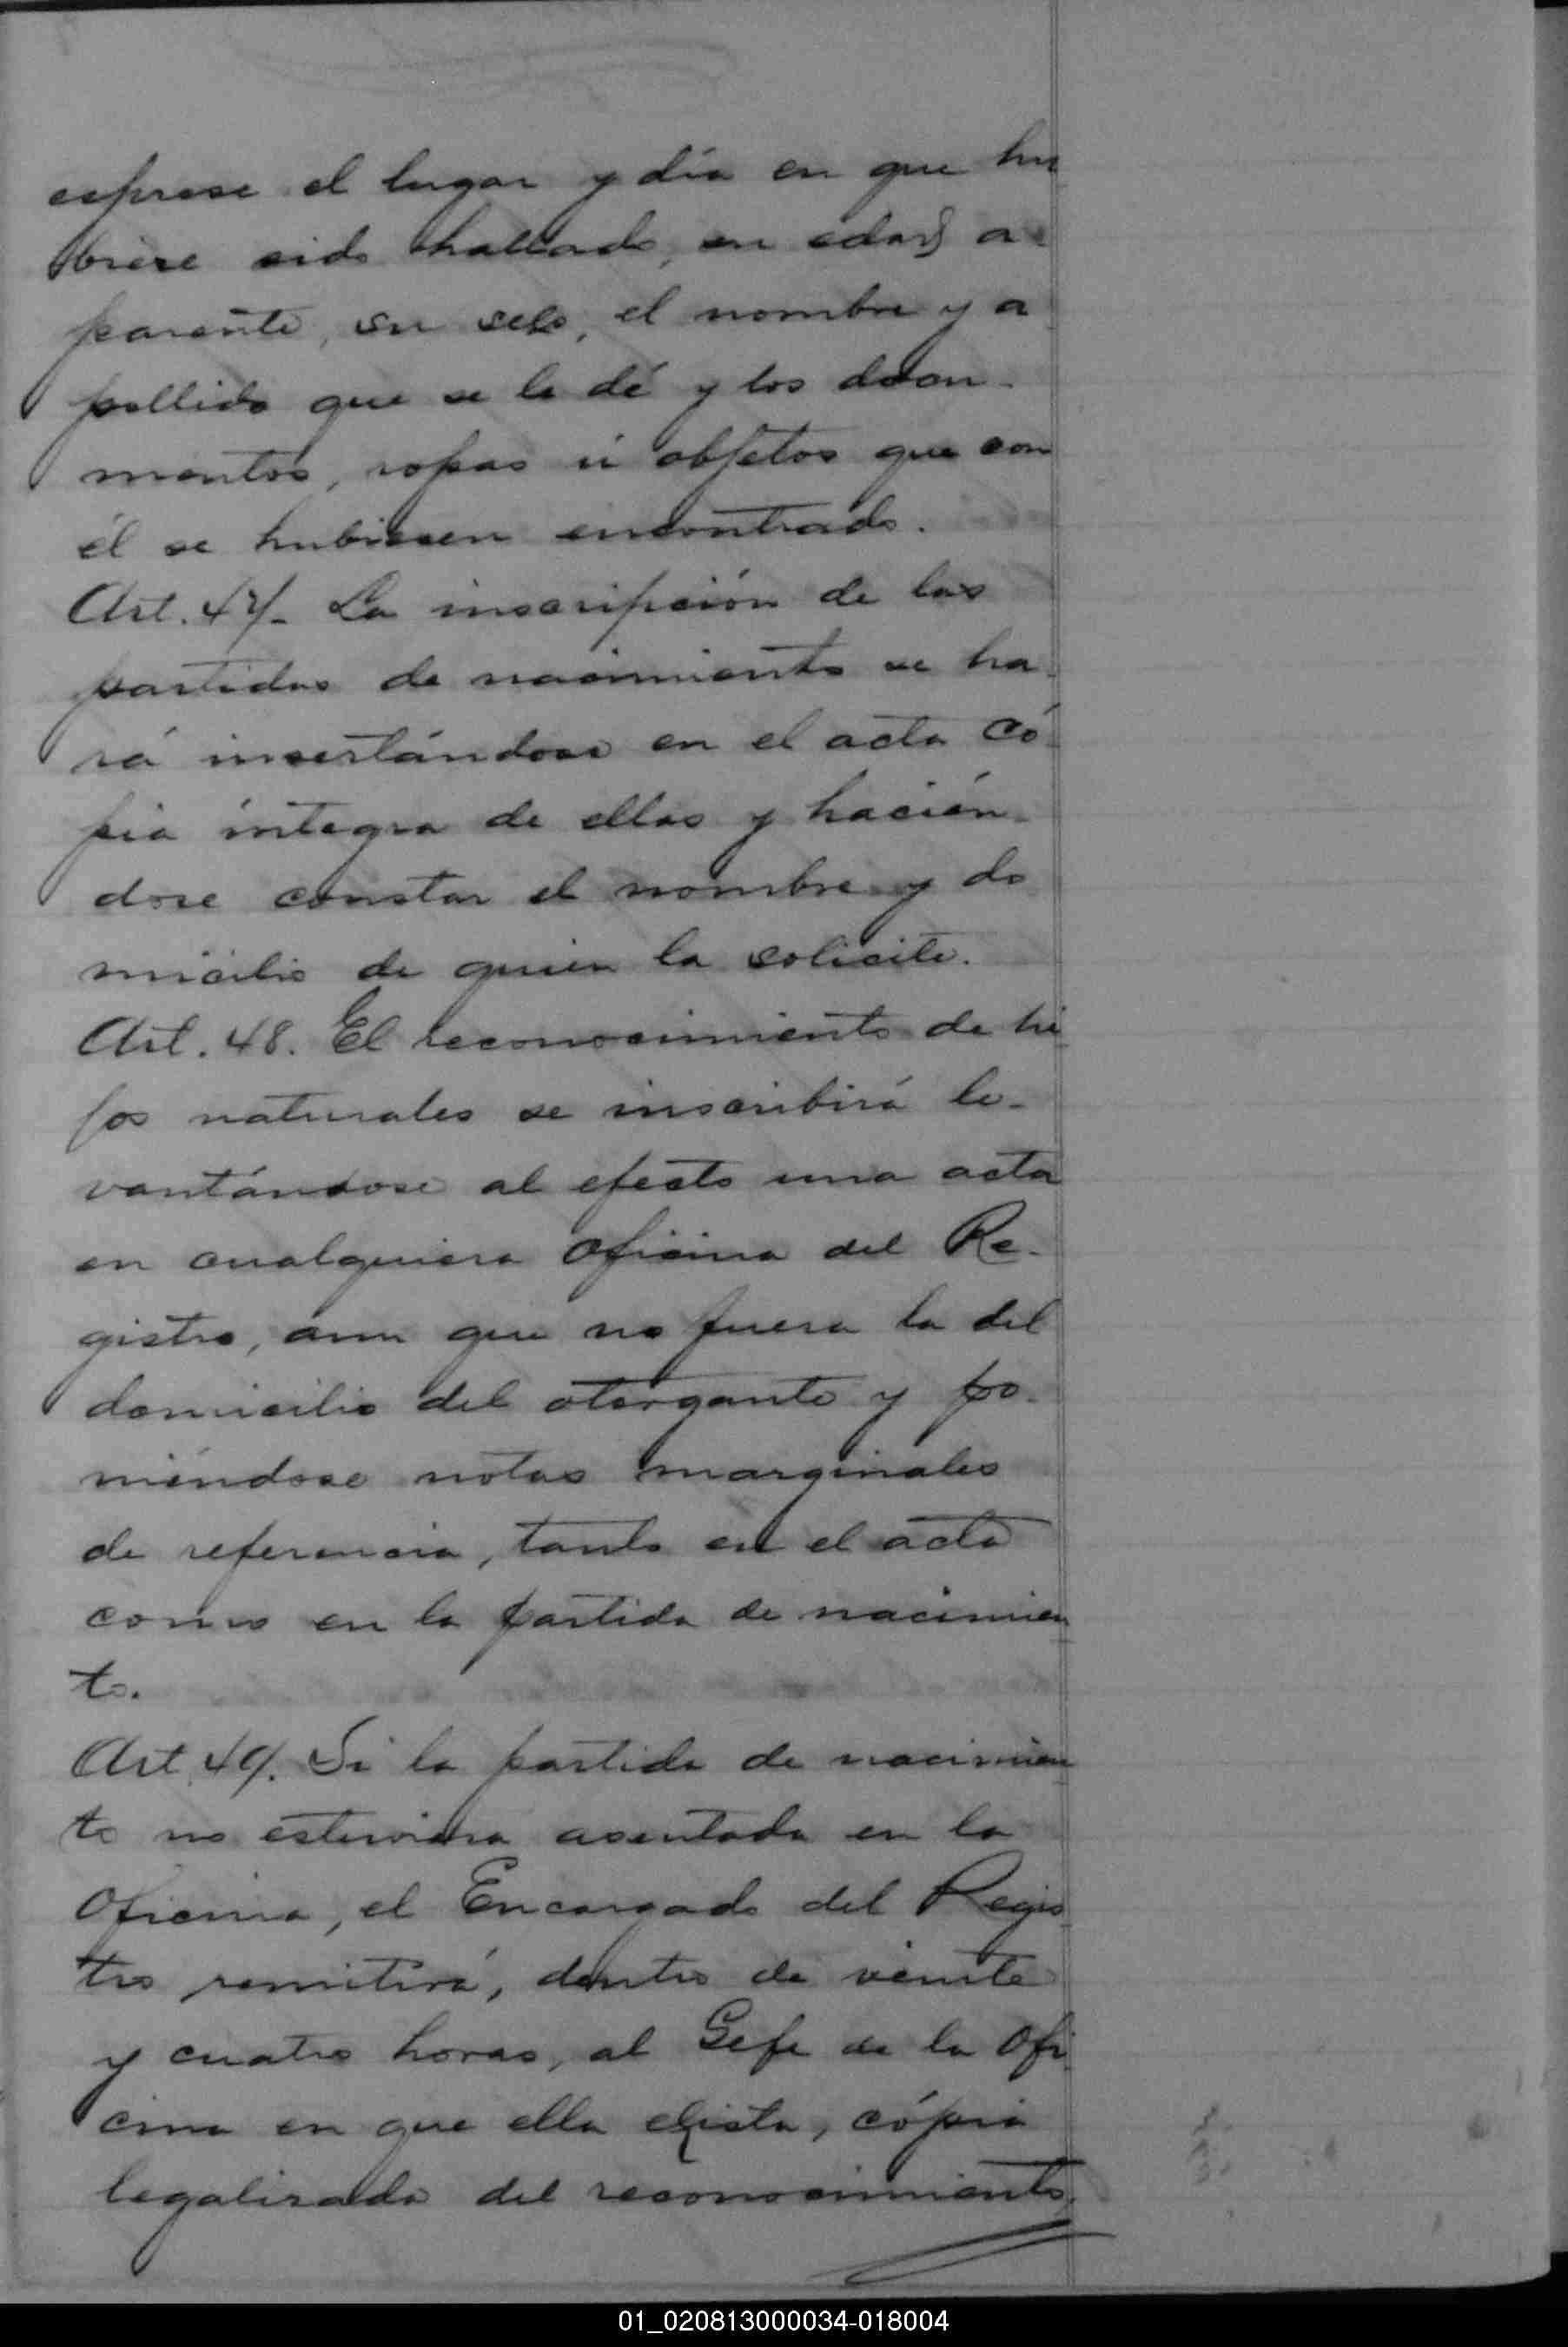 esprese el lugar y día en que hu
biere sido hallado, su edad a-
parente, su seks, el nombre y a
pellido que se le dé y los docu-
mentos, ropas ú objetos que con
él se hubiesen encontrado.
Art. 47- La inscripción de las
partidas de nacimiento se ha-
rá insertándose en el acta có-
pia íntegra de ellas y hacién-
dose constar el nombre y do
micilio de quien la solicite.
Art. 48. El reconocimiento de hi
jos naturales se inscribirá le-
vantándose al efecto una acta
en cualquiera Oficina del Re-
gistro, aun que no fuera la del
domicilio del otorgante y po-
niéndose notas marginales
de referencia, tanto en el acta
como en la partida de nacimien
to.
Art. 49. Si la partida de nacimien
to no estuviera asentada en la
Oficina, el Encargado del Regis
tro remitirá, dentro de veinte
y cuatro horas, al Gefe de la Ofi
cina en que ella exista, cópia
legalizada del reconocimiento,
01_020813000034-018004